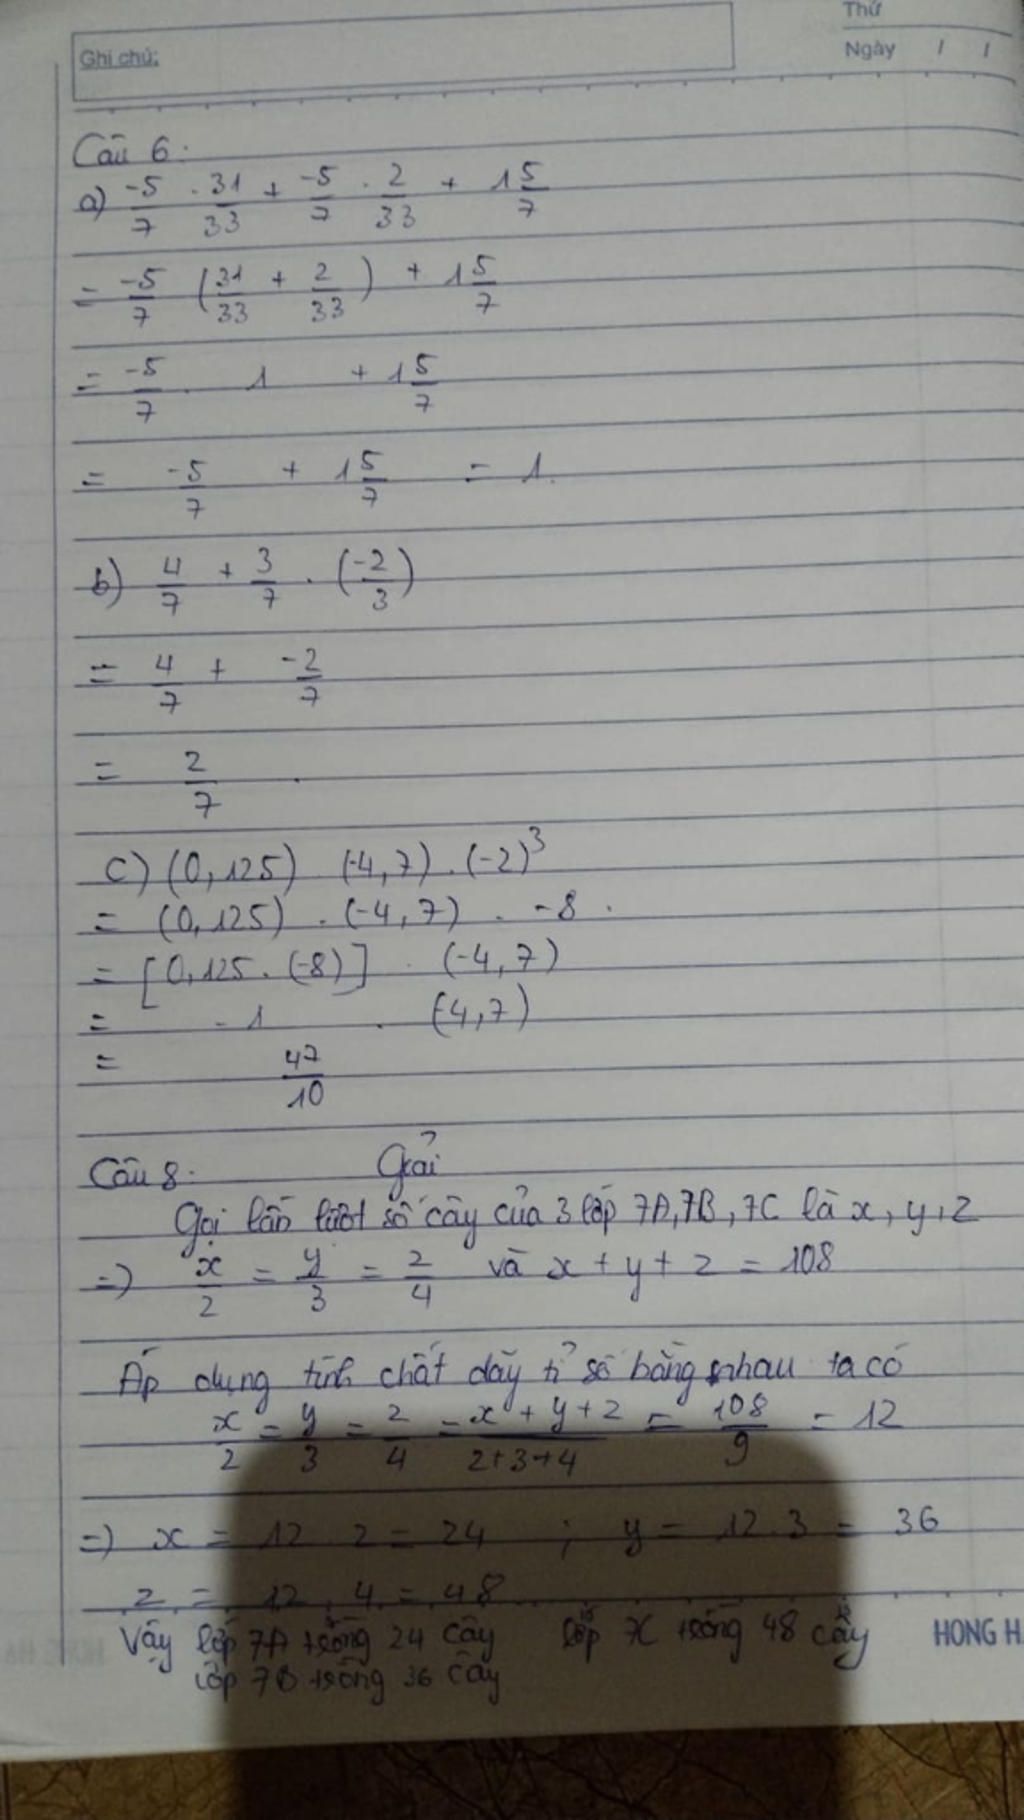 Thứ
Ghi chú:
Ngày / /
Câu 6:
a) -5/7 . 31/33 + -5/7 . 2/33 + 1 5/7
= -5/7 (31/33 + 2/33) + 1 5/7
= -5/7 . 1 + 1 5/7
= -5/7 + 1 5/7 = 1.
b) 4/7 + 3/7 . (-2/3)
= 4/7 + -2/7
= 2/7 .
c) (0,125) . (-4,7) . (-2)³
= (0,125) . (-4,7) . -8 .
= [0,125 . (-8)] . (-4,7)
= -1 . (-4,7)
= 47/10
Câu 8: Giải
Gọi lần lượt số cây của 3 lớp 7A, 7B, 7C là x, y, z
=) x/2 = y/3 = z/4 và x + y + z = 108
Áp dụng tính chất dãy tỉ số bằng nhau ta có
x/2 = y/3 = z/4 = x + y + z/2+3+4 = 108/9 = 12
=) x = 12 . 2 = 24 ; y = 12 . 3 = 36
z = 12 . 4 = 48
Vậy lớp 7A trồng 24 cây lớp 7C trồng 48 cây
lớp 7B trồng 36 cây
HONG H